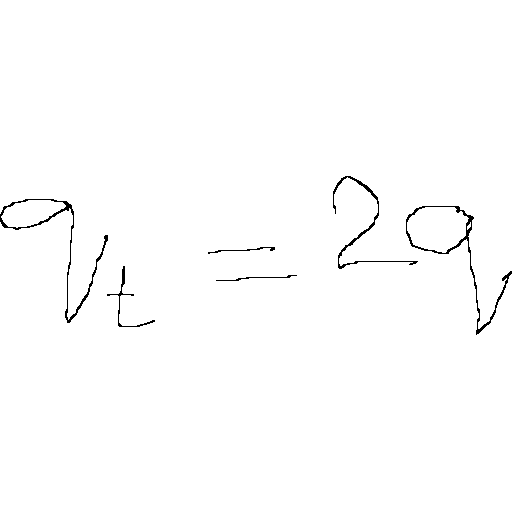 q_t = 2q